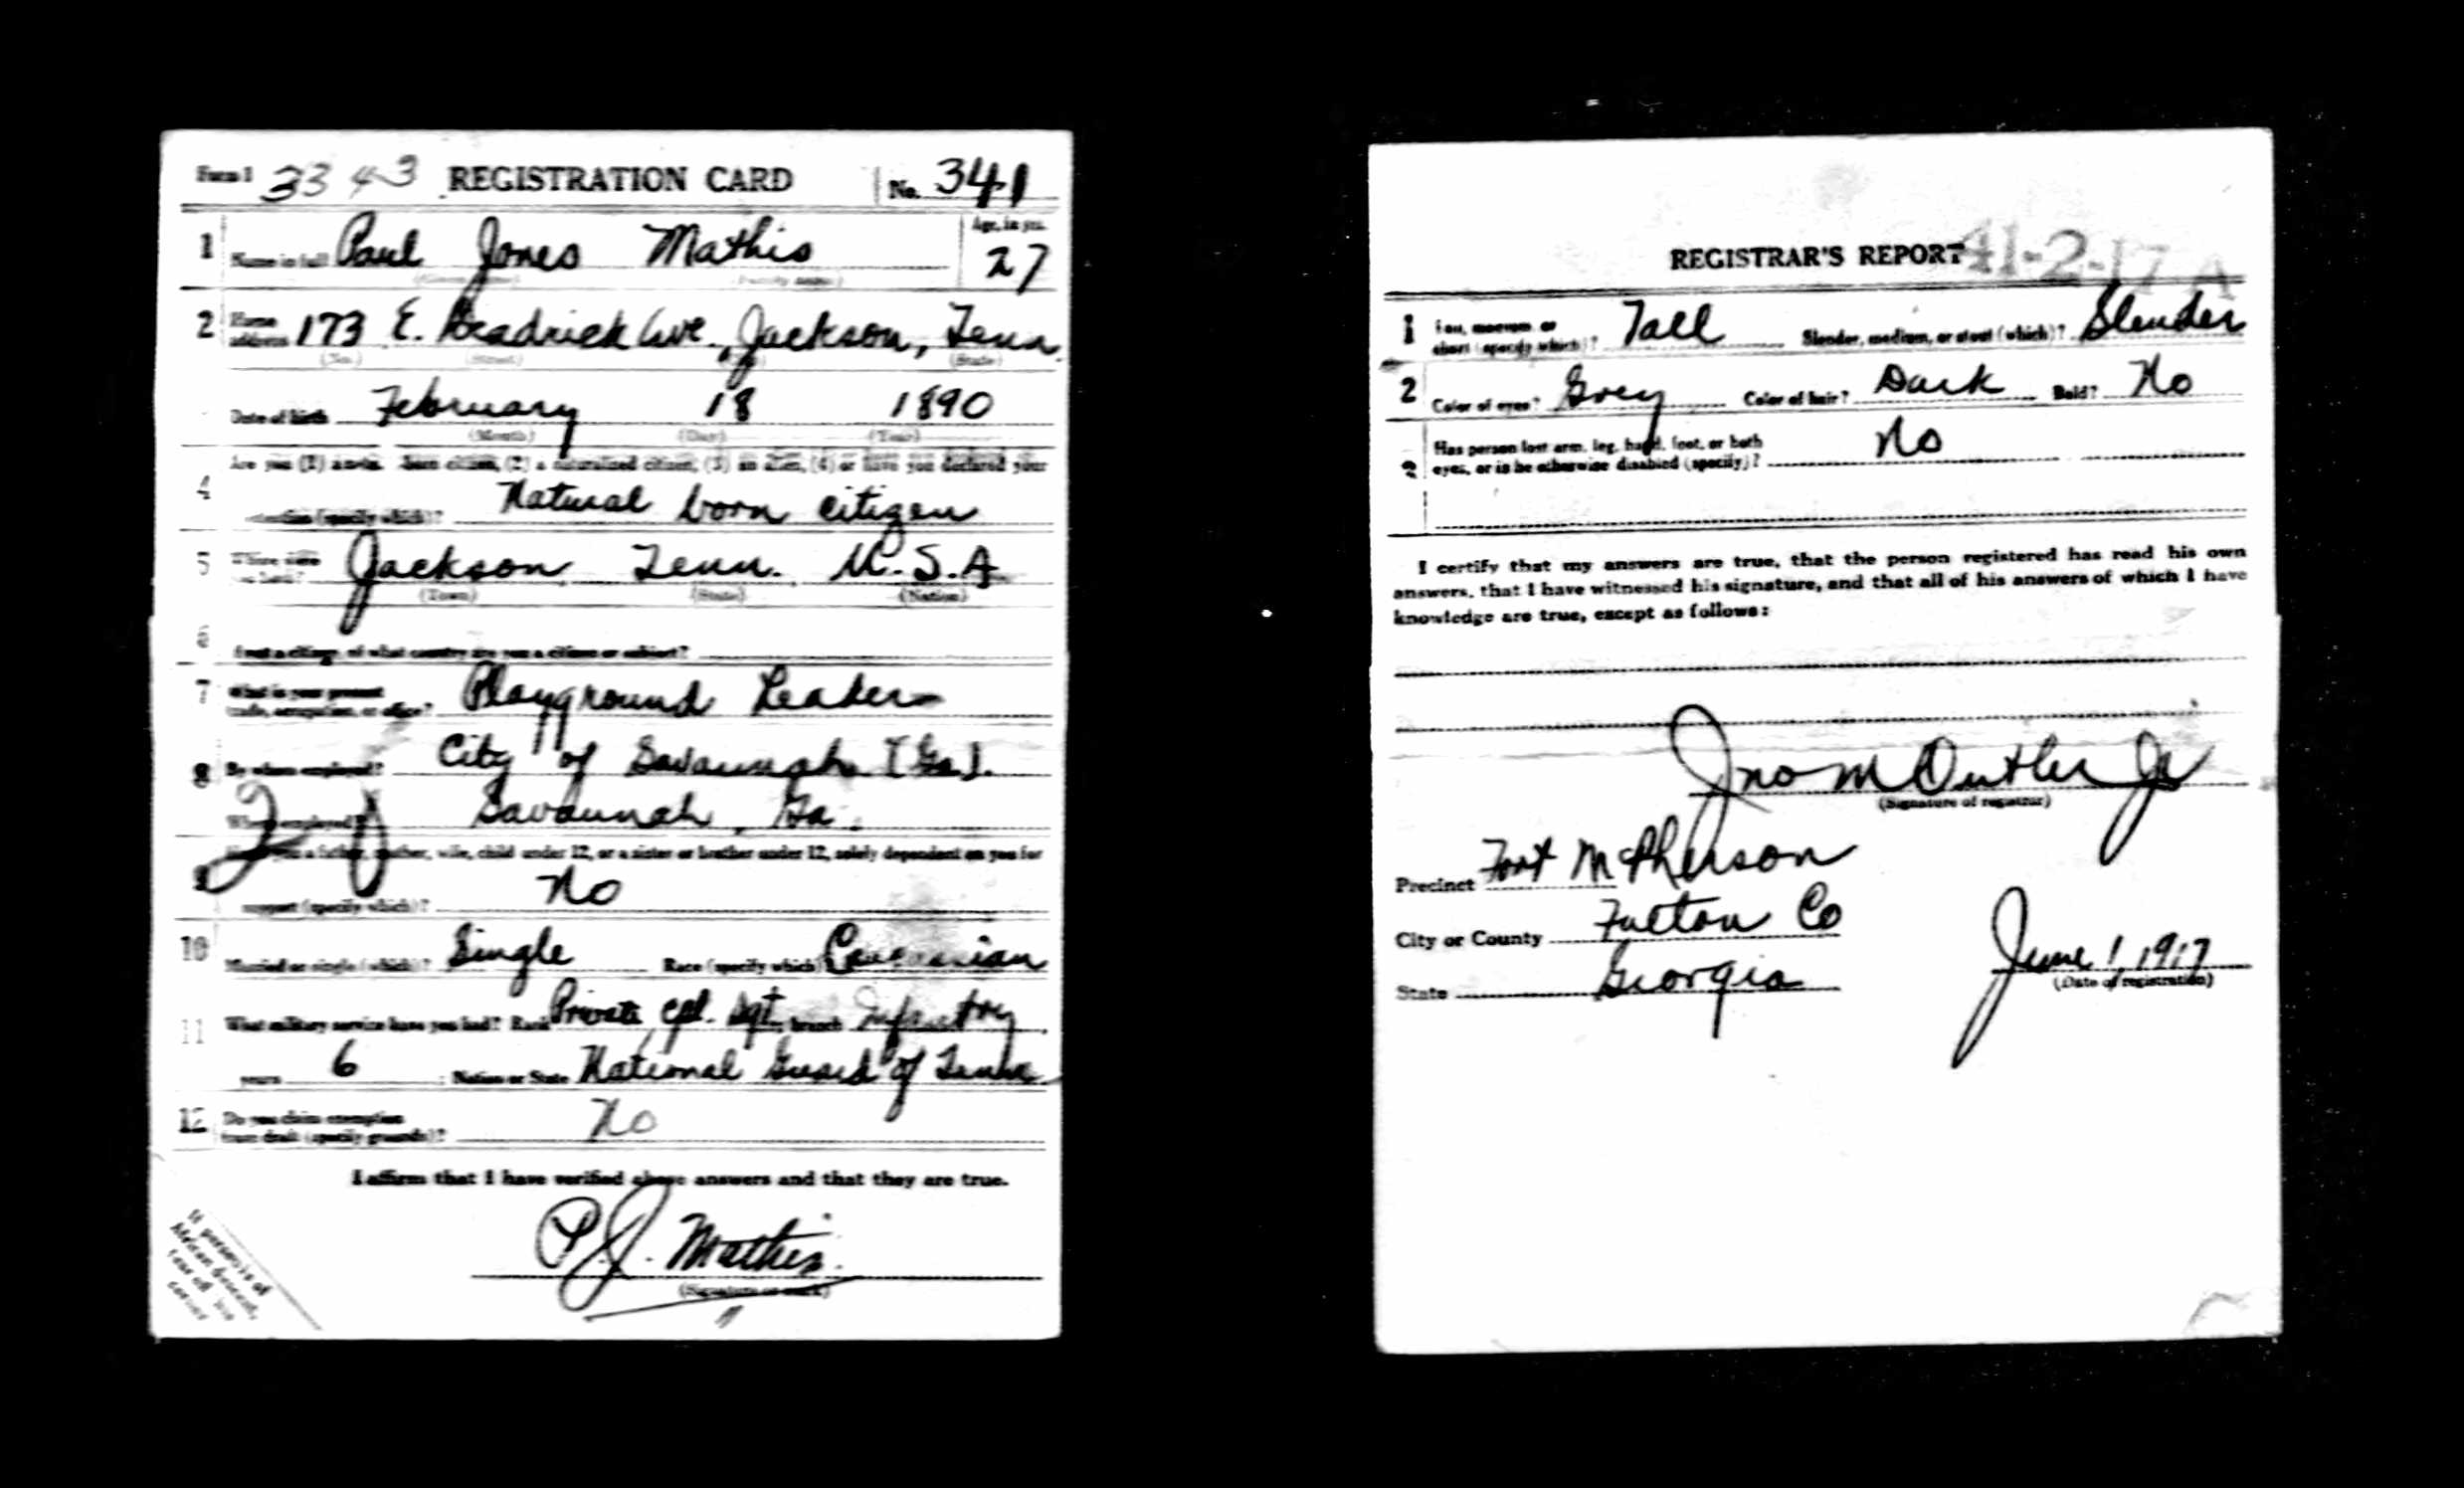 Form 1 3343 REGISTRATION CARD No. 341
1 Name in full Paul Jones Mathis Age, in yrs. 27
(Given name) (Family name)
2 Home address 173 E. Ave., Jackson, Tenn
(No.) (Street) (State)
Date of birth February 18 1890
(Month) (Day) (Year)
Are you (1) a natural born citizen, (2) a naturalized citizen, (3) an alien, (4) or have you declared your
4 intention (specify which)? Natural born citizen
5 Where were you born? Jackson Tenn. U.S.A
(Town) (State) (Nation)
6 If not a citizen, of what country are you a citizen or subject?
7 What is your present trade, occupation, or office? Playground Leader
8 By whom employed? City of Savannah (Ga).
Where employed? Savannah, Ga.
9 Have you a father, mother, wife, child under 12, or a sister or brother under 12, solely dependent on you for
support (specify which)? No
10 Married or single (which)? Single Race (specify which)? Caucasian
11 What military service have you had? Rank Private, Cpl. Sgt. branch Infantry
years 6 ; Nation or State National Guard of Tenn.
12 Do you claim exemption from draft (specify grounds)? No
I affirm that I have verified above answers and that they are true.
P. J. Mathis.
(Signature or mark)
If person is of
African descent,
tear off this
corner
REGISTRAR'S REPORT 41-2-17 A
1 Tall, medium, or short (specify which)? Tall Slender, medium, or stout (which)? Slender
2 Color of eyes? Grey Color of hair? Dark Bald? No
3 Has person lost arm, leg, hand, foot, or both
eyes, or is he otherwise disabled (specify)? No
I certify that my answers are true, that the person registered has read his own
answers, that I have witnessed his signature, and that all of his answers of which I have
knowledge are true, except as follows:
Jno M Jr
(Signature of registrar)
Precinct Fort McPherson
City or County Fulton Co
State Georgia June 1, 1917
(Date of registration)